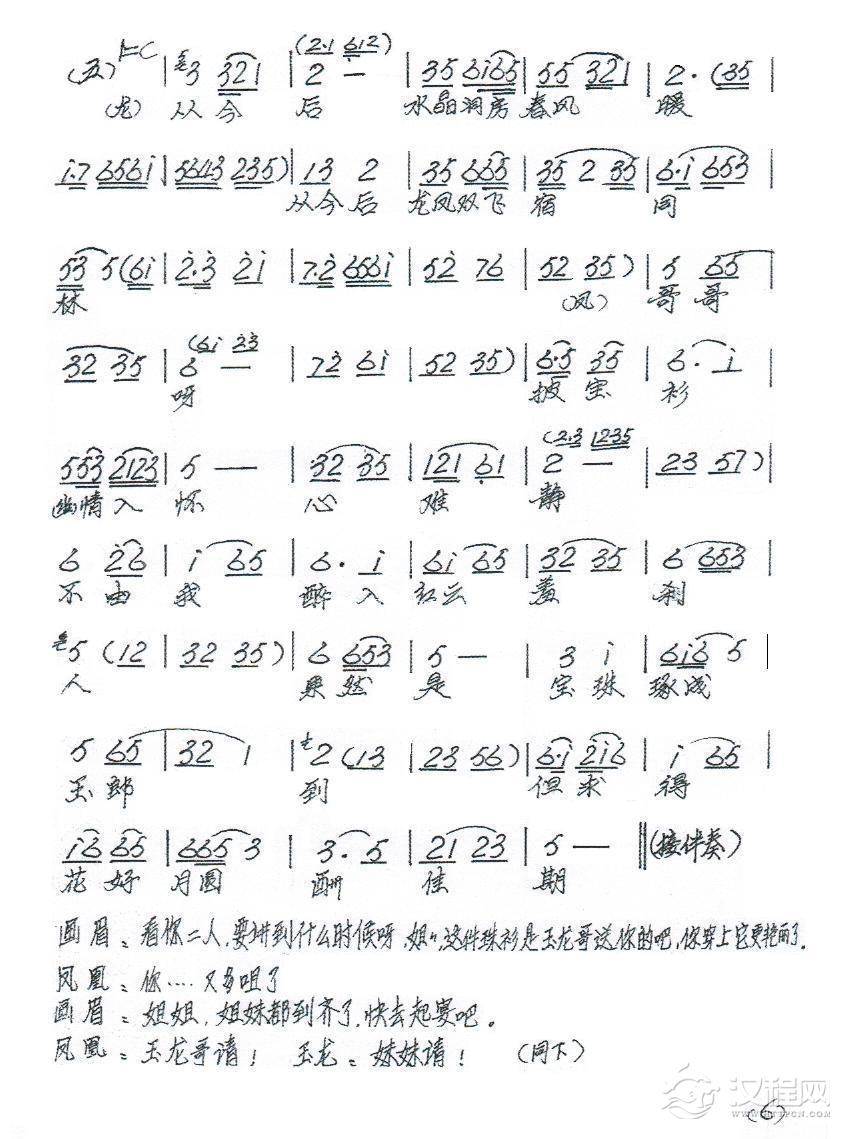 (五) 1=C | 3 321 | 2 — | 35 6i65 | 55 321 | 2· (35 |
(2·1 612)
(龙) 从今 后 水晶洞房 春风 暖
i·7 656i | 5643 235) | 13 2 | 35 665 | 35 2 35 | 6·i 653 |
从今后 龙凤双飞 宿 同
53 5 (6i | 2·3 2i | 7·2 656i | 52 76 | 52 35) | 5 65 |
林 (凤) 哥哥
(6i 23
32 35 | 6 — | 72 6i | 52 35) | 6·5 35 | 6· i |
呀 披宝 衫
(2·3 1235
553 2123 | 5 — | 32 35 | 121 61 | 2 — | 23 57) |
幽情入 怀 心 难 静
6 26 | i 65 | 6· i | 6i 65 | 32 35 | 6 653 |
不由 我 醉入 红云 羞 刹
5 (12 | 32 35) | 6 653 | 5 — | 3 i | 6i6 5 |
人 果然 是 宝珠 琢成
5 65 | 32 1 | 2 (13 | 23 56) | 6·i 2i6 | i 65 |
玉郎 到 但求 得
i6 65 | 665 3 | 3· 5 | 21 23 | 5 — ‖ (接伴奏)
花好 月圆 酬 佳 期
画眉：看你二人，要讲到什么时候呀，姐々，这件珠衫是玉龙哥送你的吧，你穿上它更艳丽了。
凤凰：你‥‥又多咀了
画眉：姐姐，姐妹都到齐了，快去起宴吧。
凤凰：玉龙哥请！ 玉龙：妹妹请！ (同下)
汉程网
WWW.HTTPCN.COM
(6)